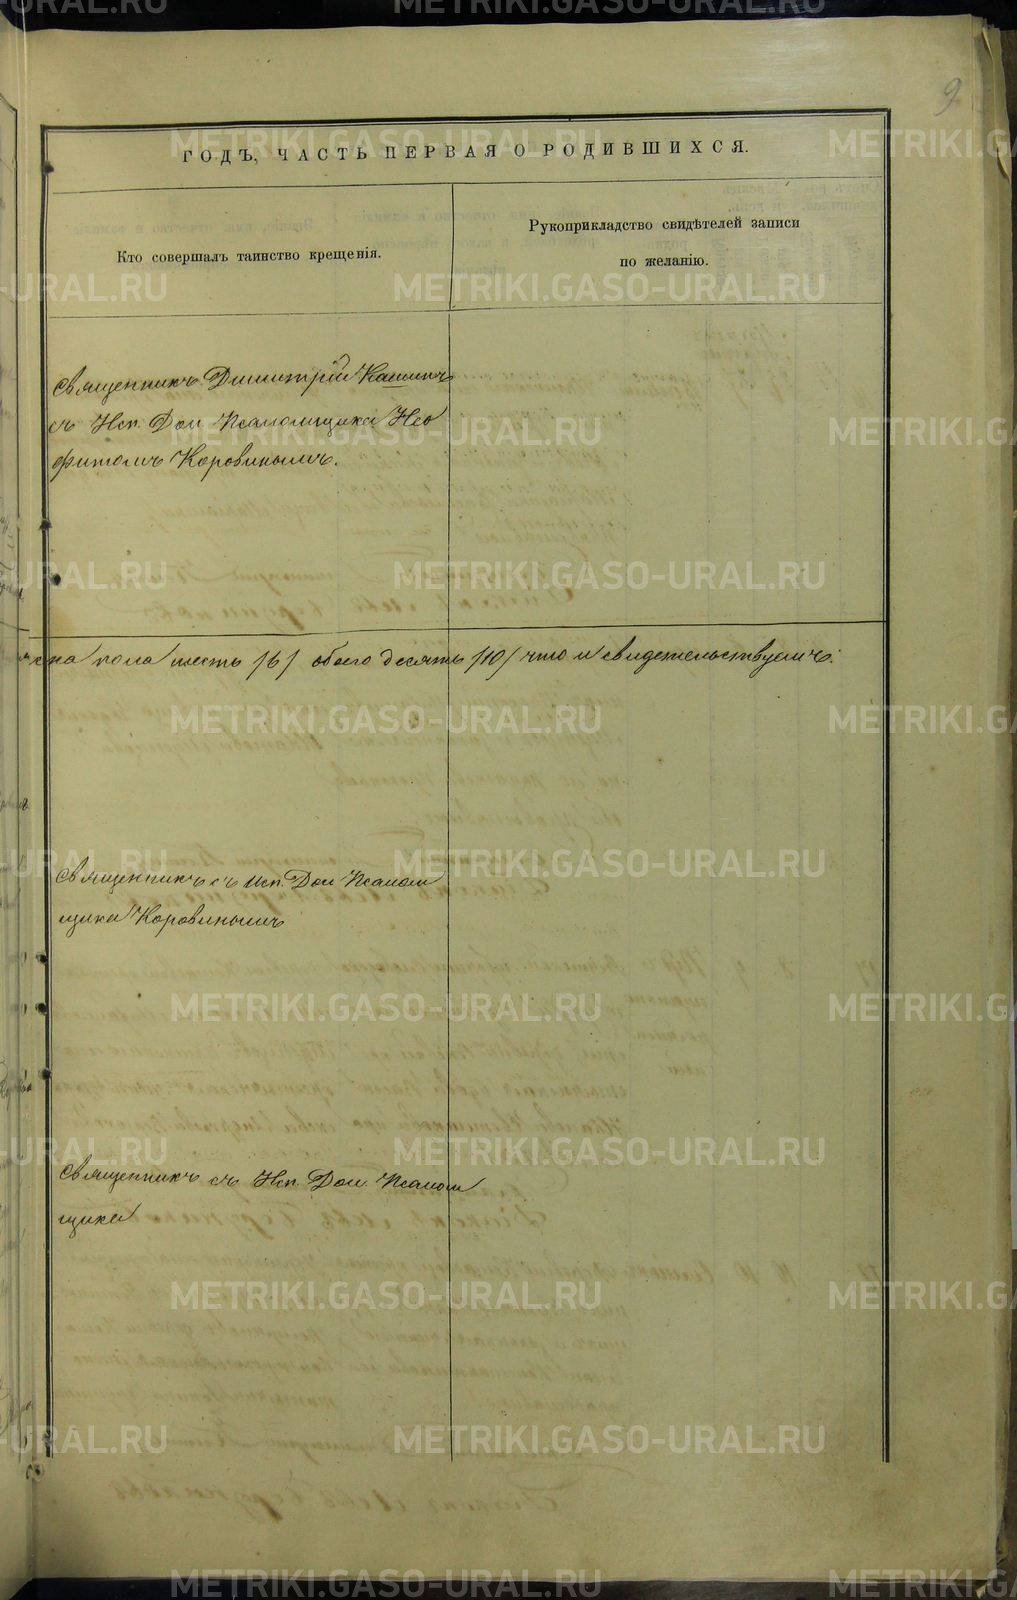 9
ГОДЪ, ЧАСТЬ ПЕРВАЯ О РОДИВШИХСЯ.
Кто совершалъ таинство крещенія.
Рукоприкладство свидѣтелей записи
по желанію.
Священникъ Димитрій Кашинъ
съ Исп. Дол. Псаломщика Нео
фитомъ Коровинымъ.
пола шесть /6/ обоего десять /10/ что и свидетельствуемъ:
Священникъ съ Исп. Дол Псалом
щика Коровинымъ
Священникъ съ Исп. Дол. Псалом
щика
METRIKI.GASO-URAL.RU